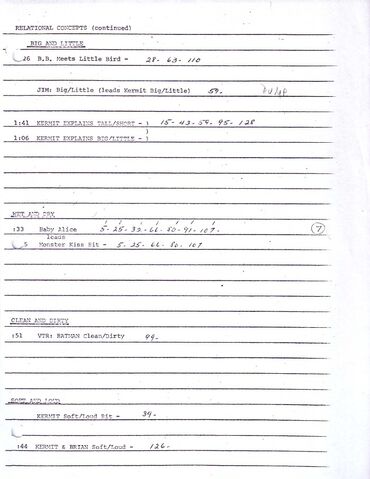 RELATIONAL CONCEPTS (continued)
BIG AND LITTLE
:26 B.B. Meets Little Bird - 28- 63- 110
JIM: Big/Little (leads Kermit Big/Little) 59.
1:41 KERMIT EXPLAINS TALL/SHORT - ) 15- 43- 59- 95- 128
)
1:06 KERMIT EXPLAINS BIG/LITTLE - )
WET AND DRY
:33 Baby Alice 5- 25- 39- 66- 80- 91- 107- 7
leads
5 Monster Kiss Bit - 5- 25- 66- 80- 107
CLEAN AND DIRTY
:51 VTR: BATMAN Clean/Dirty 99-
SOFT AND LOUD
KERMIT Soft/Loud Bit - 39-
:44 KERMIT & BRIAN Soft/Loud - 126-